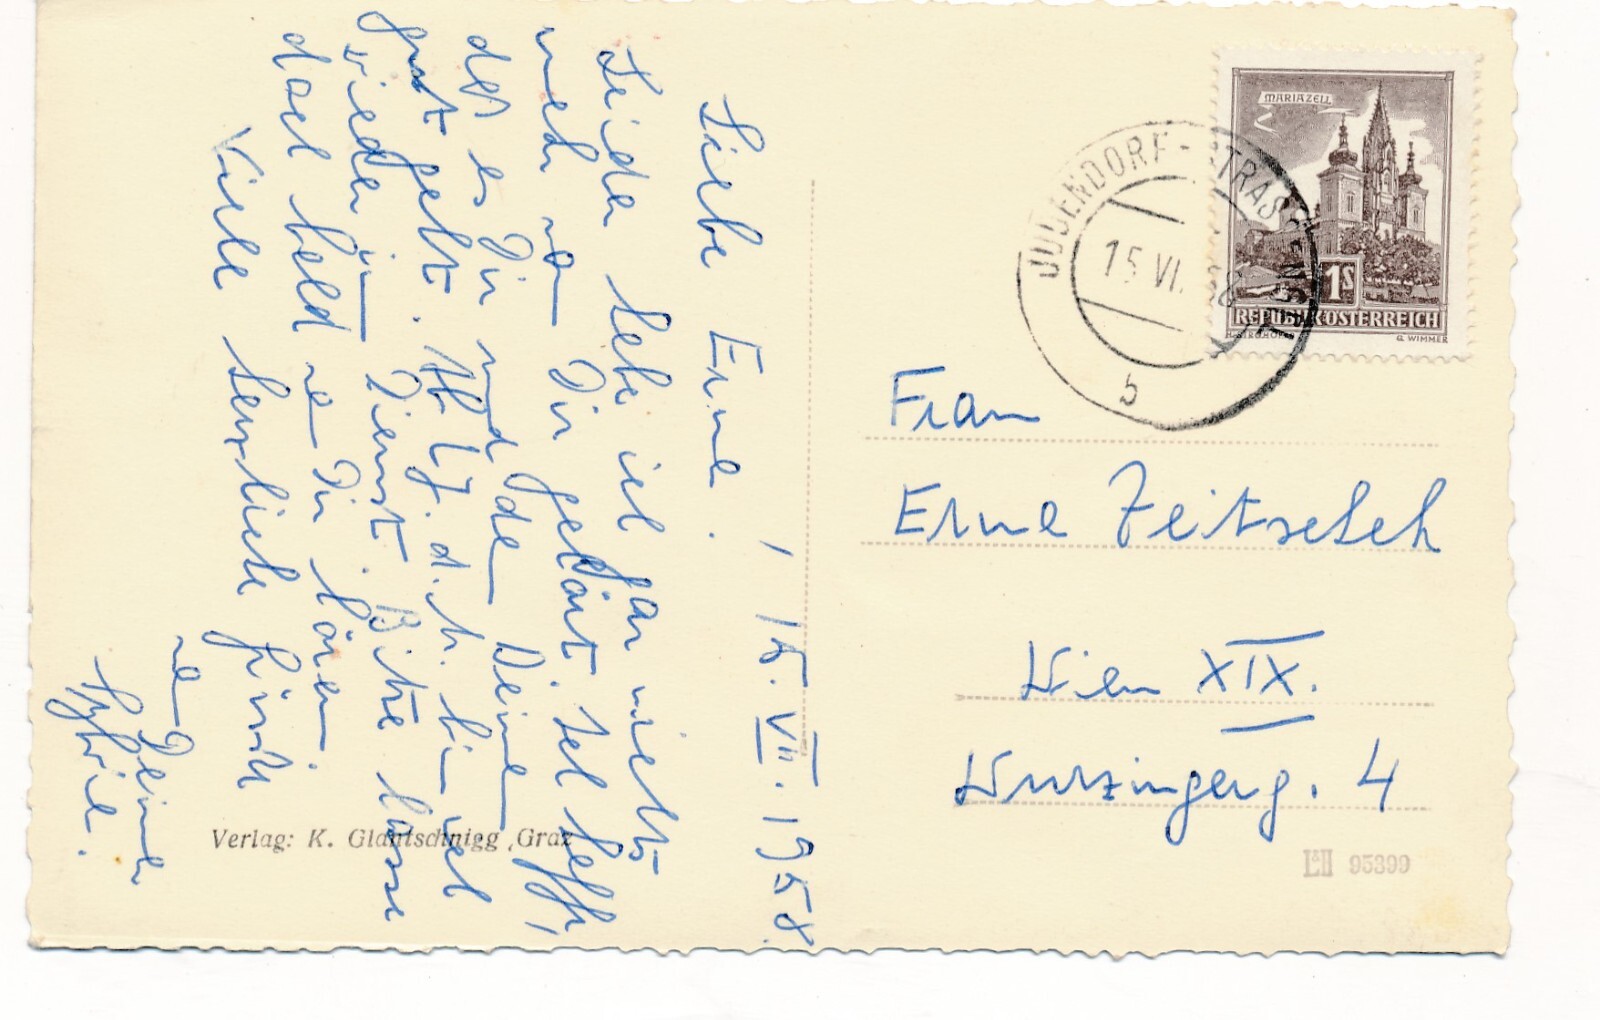 15. VII. 1958.
Liebe Erne!
Leider habe ich gar nichts
mehr von Dir gehört. Ich hoffe,
daß es Dir und den Deinen
gut geht. Ab 1.7. d. h. bin ich
wieder im Dienst. Bitte lasse
doch bald von Dir hören.
Viele herzliche Grüße
von Deiner
Sylvie.
Verlag: K. Glantschnigg, Graz
MARIAZELL
1S
REPUBLIK ÖSTERREICH
G. WIMMER
JUDENDORF-STRASSENGEL
15. VII. 58
b
Frau
Erne Zeitschek
Wien XIX.
Kurzingerg. 4
L&H 95399